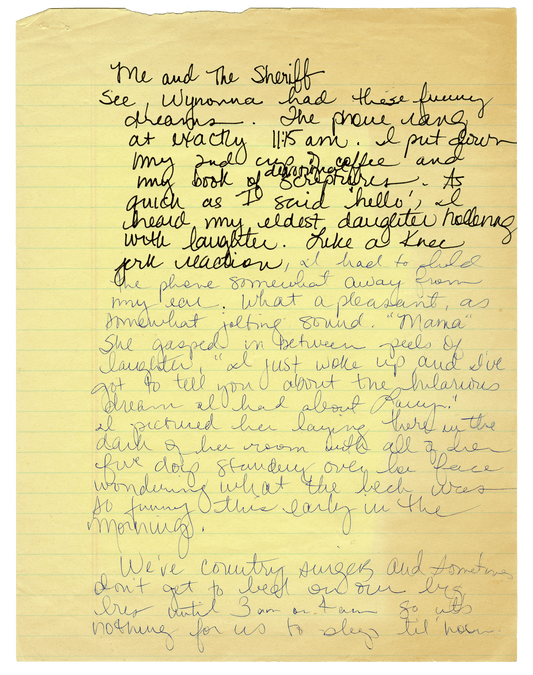 Me and The Sheriff
See, Wynonna had these funny
dreams. The phone rang
at exactly 11:15 am. I put down
my 2nd cup of coffee and
my book of devotional scriptures. As
quick as I said 'hello', I
heard my eldest daughter hollering
with laughter. Like a knee
jerk reaction, I had to hold
the phone somewhat away from
my ear. What a pleasant, as
somewhat jolting sound. "Mama"
she gasped in between peels of
laughter, "I just woke up and I've
got to tell you about the hilarious
dream I had about Larry."
I pictured her laying there in the
dark of her room with all of her
five dogs standing over her face
wondering what the heck was
so funny this early in the
morning.
We're country singers and sometimes
don't get to bed on our big
bus until 3 am or 4 am so its
nothing for us to sleep til noon.